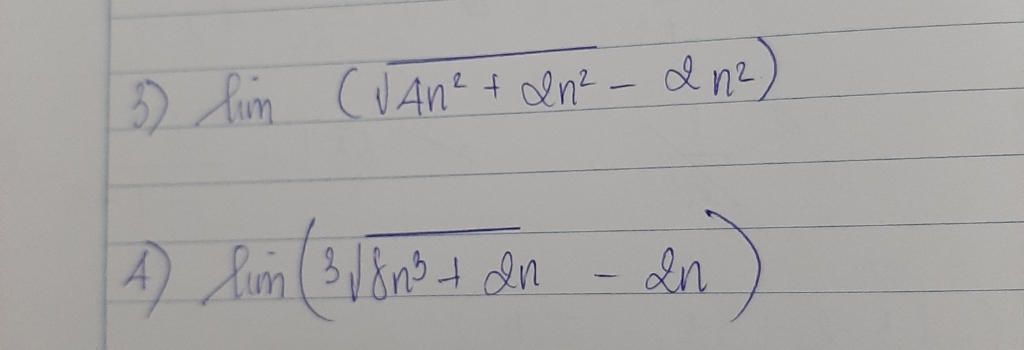 3) lim (√4n² + 2n² - 2n²)
4) lim (³√8n³ + 2n - 2n)